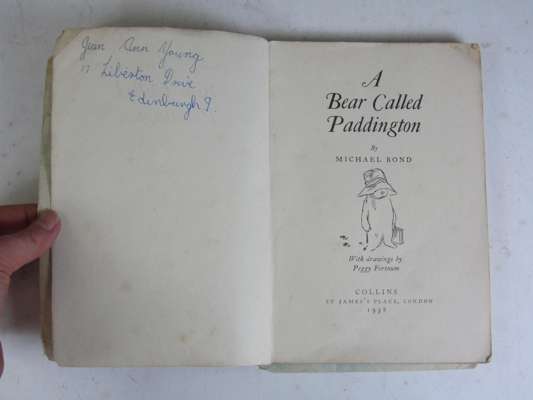 Jean Ann Young
17 Liberton Drive
Edinburgh 9.
A
Bear Called
Paddington
By
MICHAEL BOND
With drawings by
Peggy Fortnum
COLLINS
ST JAMES'S PLACE, LONDON
1958